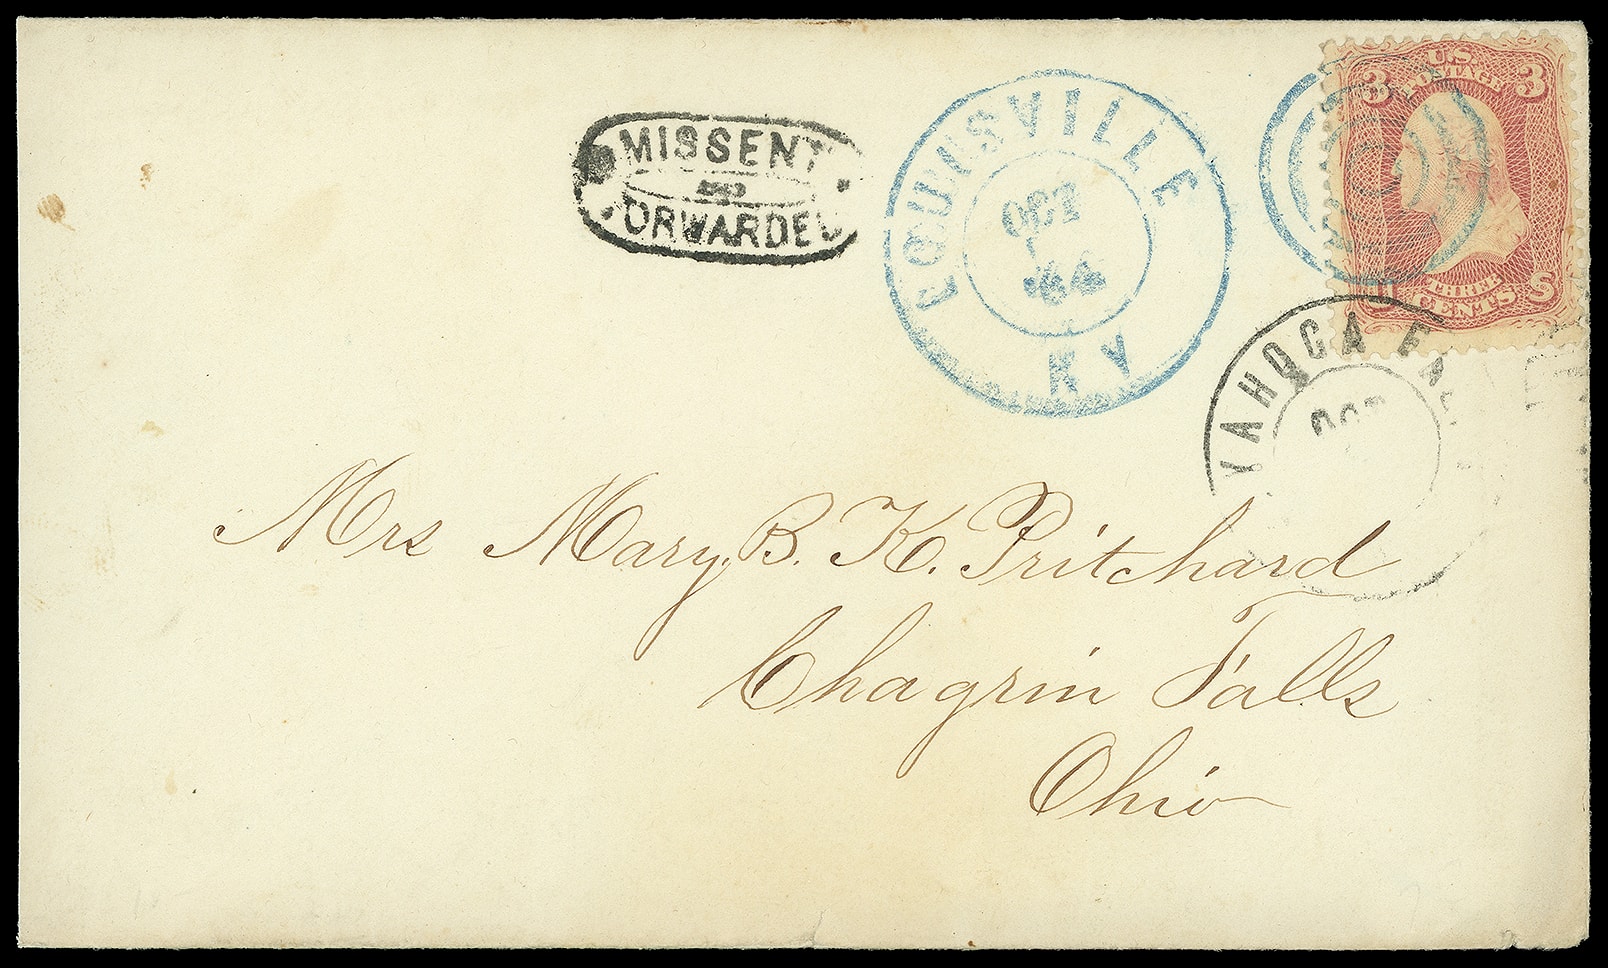 MISSENT
AND
FORWARDED
LOUISVILLE
OCT
1
'64
KY
U.S.
POSTAGE
3 3
THREE
CENTS
U S
YAHOGA FAL
OCT
Mrs Mary B. K. Pritchard
Chagrin Falls
Ohio